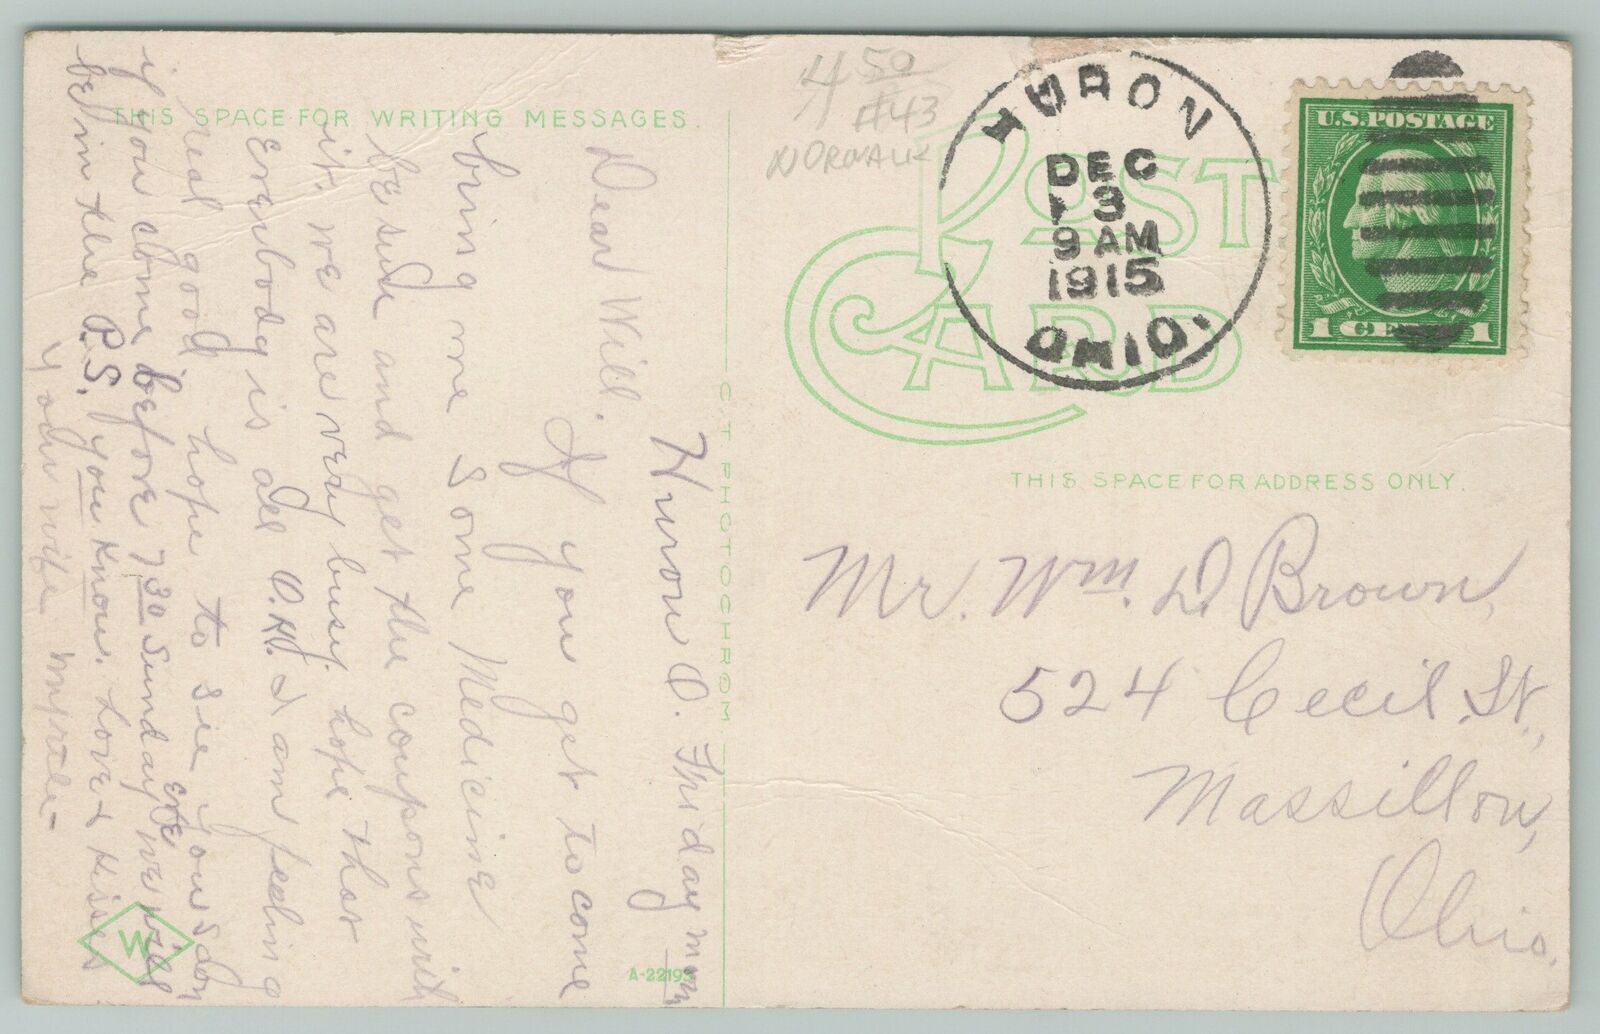 THIS SPACE FOR WRITING MESSAGES
Huron O. Friday morn
Dear Will.
If you get to come
bring me some Medicine
beside and get the coupons with
it. We are very busy. hope that
Everybody is all O.K. I am feeling
real good hope to see you Sdn
eve
if you come before 7 30 Sunday we will
be in the P.S. you know. Love & Kisses
Your wife Myrtle-
W
A-22193
C.T. PHOTOCHROM
4 50
#43
NORWALK
POST CARD
HURON
DEC
3
9 AM
1915
OHIO.
U.S. POSTAGE
1 CENT 1
THIS SPACE FOR ADDRESS ONLY.
Mr. Wm. D Brown,
524 Cecil St.,
Massillon,
Ohio.